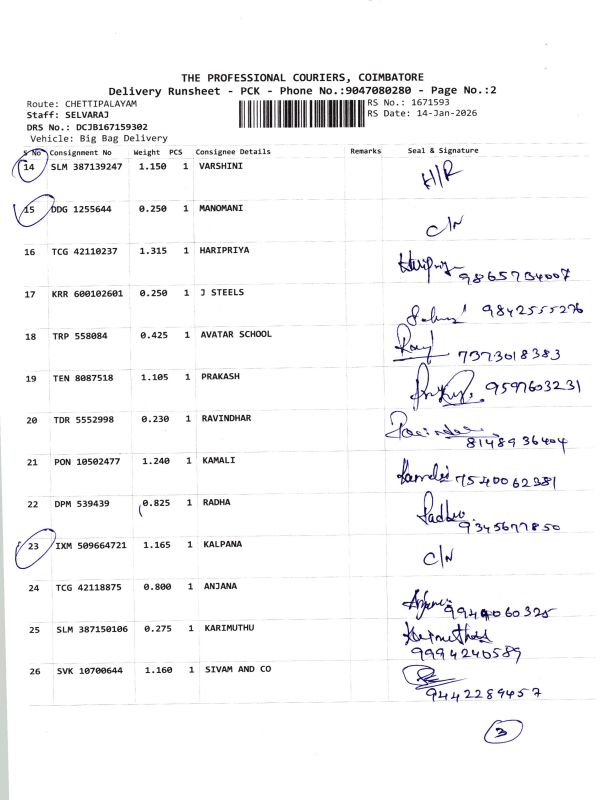 THE PROFESSIONAL COURIERS, COIMBATORE
Delivery Runsheet - PCK - Phone No.:9047080280 - Page No.:2
Route: CHETTIPALAYAM RS No.: 1671593
Staff: SELVARAJ RS Date: 14-Jan-2026
DRS No.: DCJB167159302
Vehicle: Big Bag Delivery
S No Consignment No Weight PCS Consignee Details Remarks Seal & Signature
14 SLM 387139247 1.150 1 VARSHINI H/R
15 DDG 1255644 0.250 1 MANOMANI C/N
16 TCG 42110237 1.315 1 HARIPRIYA Haripriya
9865734007
17 KRR 600102601 0.250 1 J STEELS 9842555276
18 TRP 558084 0.425 1 AVATAR SCHOOL
7373018383
19 TEN 8087518 1.105 1 PRAKASH 9597603231
20 TDR 5552998 0.230 1 RAVINDHAR
8148936404
21 PON 10502477 1.240 1 KAMALI 7540062381
22 DPM 539439 0.825 1 RADHA
9345677850
23 IXM 509664721 1.165 1 KALPANA C/N
24 TCG 42118875 0.800 1 ANJANA
25 SLM 387150106 0.275 1 KARIMUTHU
9994240589
26 SVK 10700644 1.160 1 SIVAM AND CO
9442289457
3